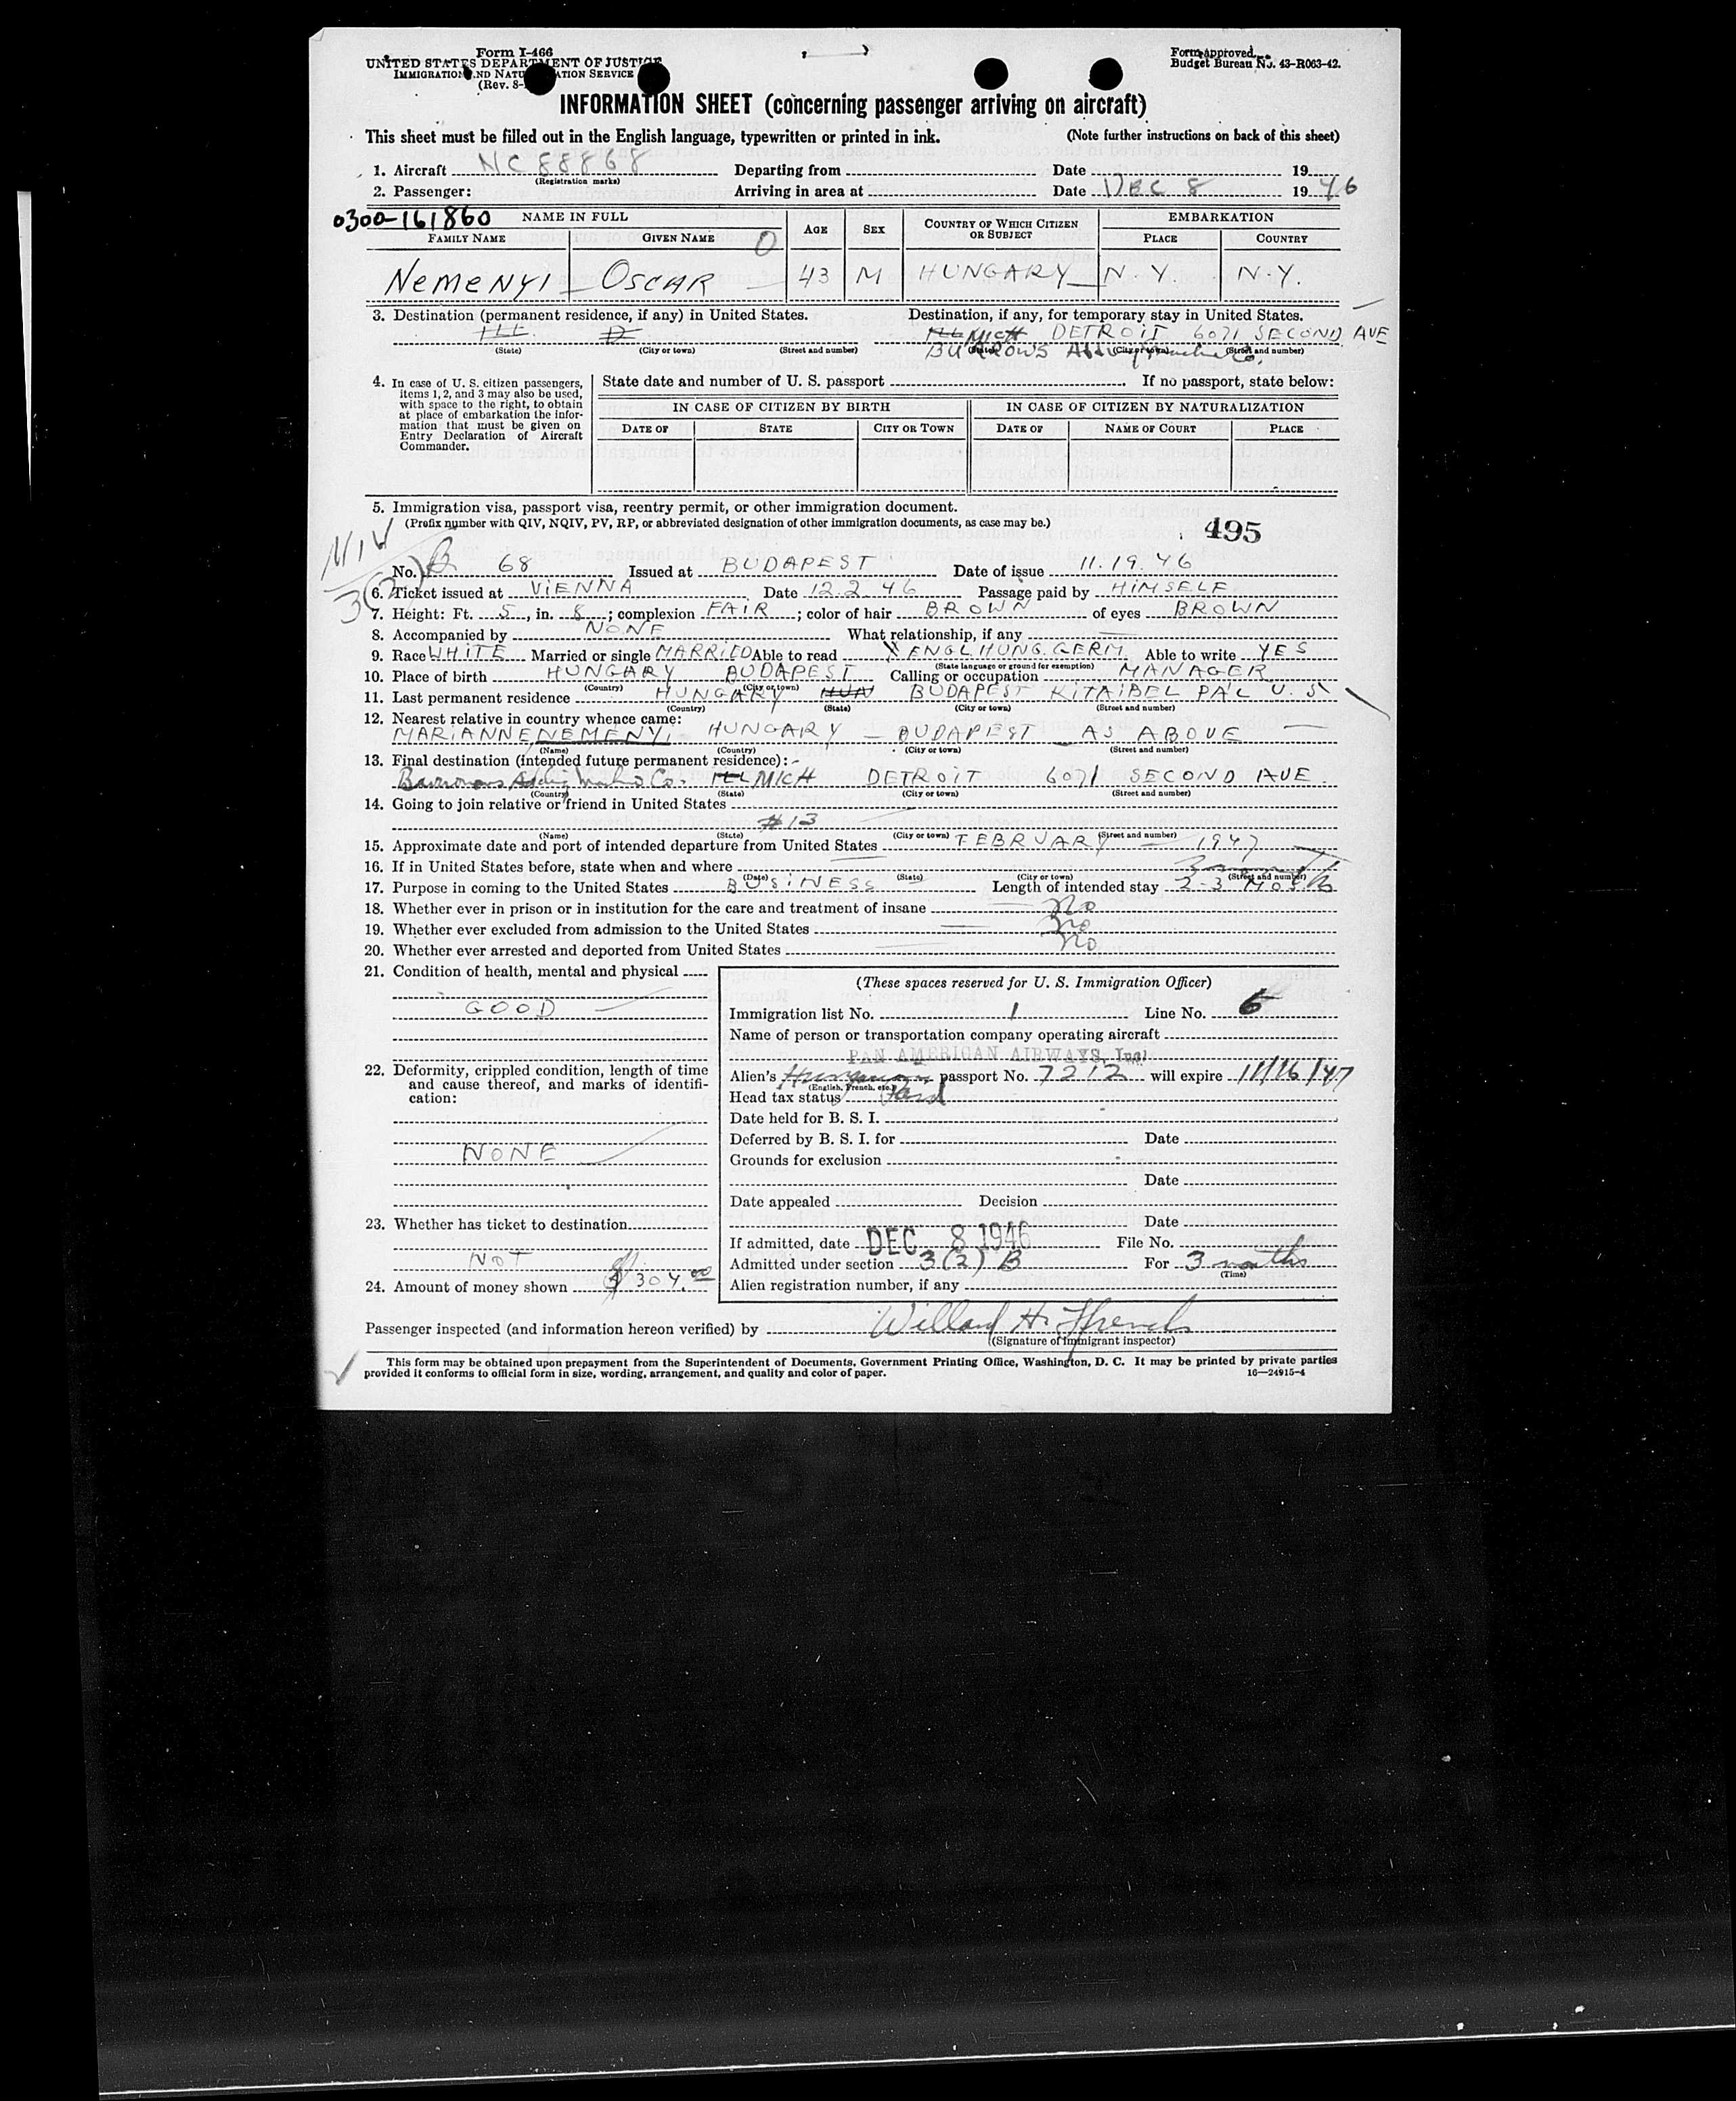 Form I-466
UNITED STATES DEPARTMENT OF JUSTICE
IMMIGRATION AND NATURALIZATION SERVICE
(Rev. 8-
Form approved.
Budget Bureau No. 43-R063-42.
INFORMATION SHEET (concerning passenger arriving on aircraft)
This sheet must be filled out in the English language, typewritten or printed in ink. (Note further instructions on back of this sheet)
1. Aircraft NC 88868 Departing from Date 19
(Registration marks)
2. Passenger: Arriving in area at Date DEC 8 1946
0300-161860 NAME IN FULL AGE SEX COUNTRY OF WHICH CITIZEN OR SUBJECT EMBARKATION
FAMILY NAME GIVEN NAME O PLACE COUNTRY
NEMENYI OSCAR 43 M HUNGARY N.Y. N.Y.
3. Destination (permanent residence, if any) in United States. Destination, if any, for temporary stay in United States.
ILL D ILL MICH DETROIT 6071 SECOND AVE
(State) (City or town) (Street and number) (State) (City or town) (Street and number)
BURROWS Co.
4. In case of U. S. citizen passengers, items 1, 2, and 3 may also be used, with space to the right, to obtain at place of embarkation the information that must be given on Entry Declaration of Aircraft Commander.
State date and number of U. S. passport If no passport, state below:
IN CASE OF CITIZEN BY BIRTH IN CASE OF CITIZEN BY NATURALIZATION
DATE OF STATE CITY OR TOWN DATE OF NAME OF COURT PLACE
5. Immigration visa, passport visa, reentry permit, or other immigration document.
(Prefix number with QIV, NQIV, PV, RP, or abbreviated designation of other immigration documents, as case may be.)
495
NIV
3(2) B
No. 68 Issued at BUDAPEST Date of issue 11.19.46
6. Ticket issued at VIENNA Date 12.2.46 Passage paid by HIMSELF
7. Height: Ft. 5, in. 8; complexion FAIR; color of hair BROWN of eyes BROWN
8. Accompanied by NONE What relationship, if any
9. Race WHITE Married or single MARRIED Able to read ENGL. HUNG. GERM. Able to write YES
(State language or ground for exemption)
10. Place of birth HUNGARY BUDAPEST Calling or occupation MANAGER
(Country) (City or town)
11. Last permanent residence HUNGARY HUN BUDAPEST KITAIBEL PÁL U. 5
(Country) (State) (City or town) (Street and number)
12. Nearest relative in country whence came:
MARIANNE NEMENYI HUNGARY BUDAPEST AS ABOVE
(Name) (Country) (City or town) (Street and number)
13. Final destination (intended future permanent residence):
Burrows Adding Co. ILL MICH DETROIT 6071 SECOND AVE.
(Country) (State) (City or town) (Street and number)
14. Going to join relative or friend in United States
#13
(Name) (State) (City or town) (Street and number)
15. Approximate date and port of intended departure from United States FEBRUARY 1947
16. If in United States before, state when and where
(Date) (State) (City or town) (Street and number)
17. Purpose in coming to the United States BUSINESS Length of intended stay 2-3 Mos
18. Whether ever in prison or in institution for the care and treatment of insane No
19. Whether ever excluded from admission to the United States No
20. Whether ever arrested and deported from United States No
21. Condition of health, mental and physical
GOOD
22. Deformity, crippled condition, length of time and cause thereof, and marks of identification:
NONE
23. Whether has ticket to destination
NOT
24. Amount of money shown $304.00
(These spaces reserved for U. S. Immigration Officer)
Immigration list No. 1 Line No. 6
Name of person or transportation company operating aircraft
PAN AMERICAN AIRWAYS, Inc.
Alien's Hungarian passport No. 7212 will expire 11/16/47
(English, French, etc.)
Head tax status Paid
Date held for B. S. I.
Deferred by B. S. I. for Date
Grounds for exclusion
Date
Date appealed Decision
Date
If admitted, date DEC 8 1946 File No.
Admitted under section 3(2) B For 3 months
(Time)
Alien registration number, if any
Passenger inspected (and information hereon verified) by Willard H. French
(Signature of immigrant inspector)
This form may be obtained upon prepayment from the Superintendent of Documents, Government Printing Office, Washington, D. C. It may be printed by private parties
provided it conforms to official form in size, wording, arrangement, and quality and color of paper. 16—24915-4